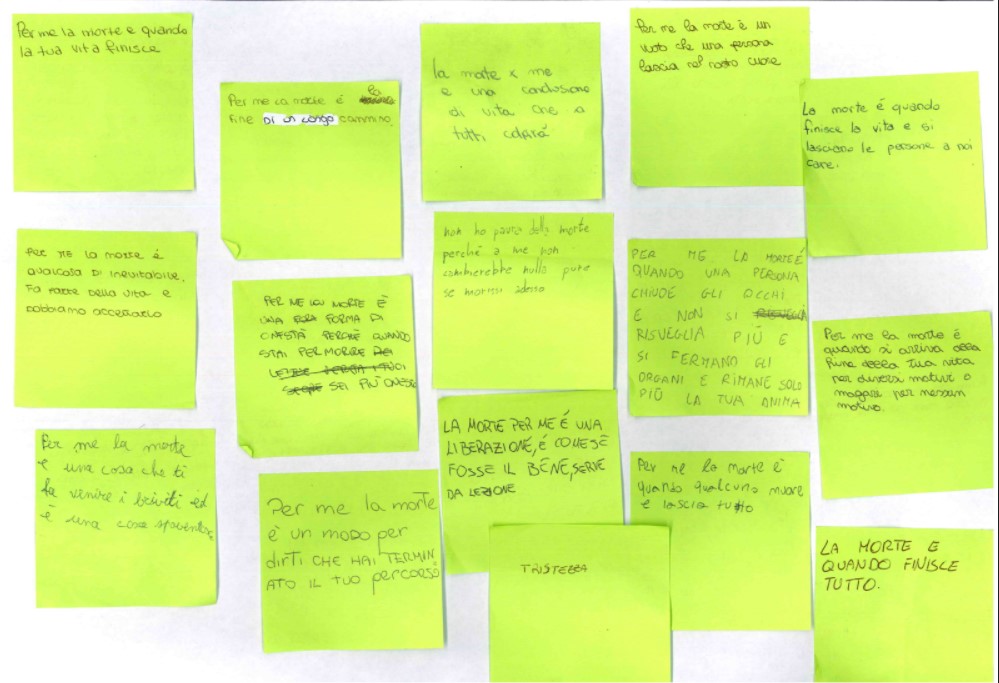 Per me la morte e quando
la tua vita finisce
Per me la morte è la
fine DI un longo cammino
la morte x me
e una conclusione
di vita che a
tutti
Per me la morte è un
vuoto che una persona
lascia nel nostro cuore
La morte é quando
finisce la vita e si
lasciano le persone a noi
care.
Per me la morte é
qualcosa di inevitabile.
Fa parte della vita e
dobbiamo accettarlo
PER ME LA MORTE È
UNA FORMA DI
ONESTÀ PERCHÈ QUANDO
STAI PER MORIRE
SEI PIÙ ONESTO
non ho paura della morte
perchè a me non
cambierebbe nulla pure
se morissi adesso
PER ME LA MORTE É
QUANDO UNA PERSONA
CHIUDE GLI OCCHI
E NON SI
RISVEGLIA PIÙ E
SI FERMANO GLI
ORGANI E RIMANE SOLO
PIÙ LA TUA ANIMA
Per me la morte é
quando si arriva alla
fine della tua vita
per diversi motivi o
magari per nessun
motivo.
Per me la morte
è una cosa che ti
fa venire i brividi ed
è una cosa
Per me la morte
è un modo per
dirti CHE HAI TERMIN
ATO IL tuo percorso
LA MORTE PER ME É UNA
LIBERAZIONE, É COME SE
FOSSE IL BENE, SERVE
DA LEZIONE
TRISTEZZA
Per me la morte è
quando qualcuno muore
e lascia tutto
LA MORTE E
QUANDO FINISCE
TUTTO.